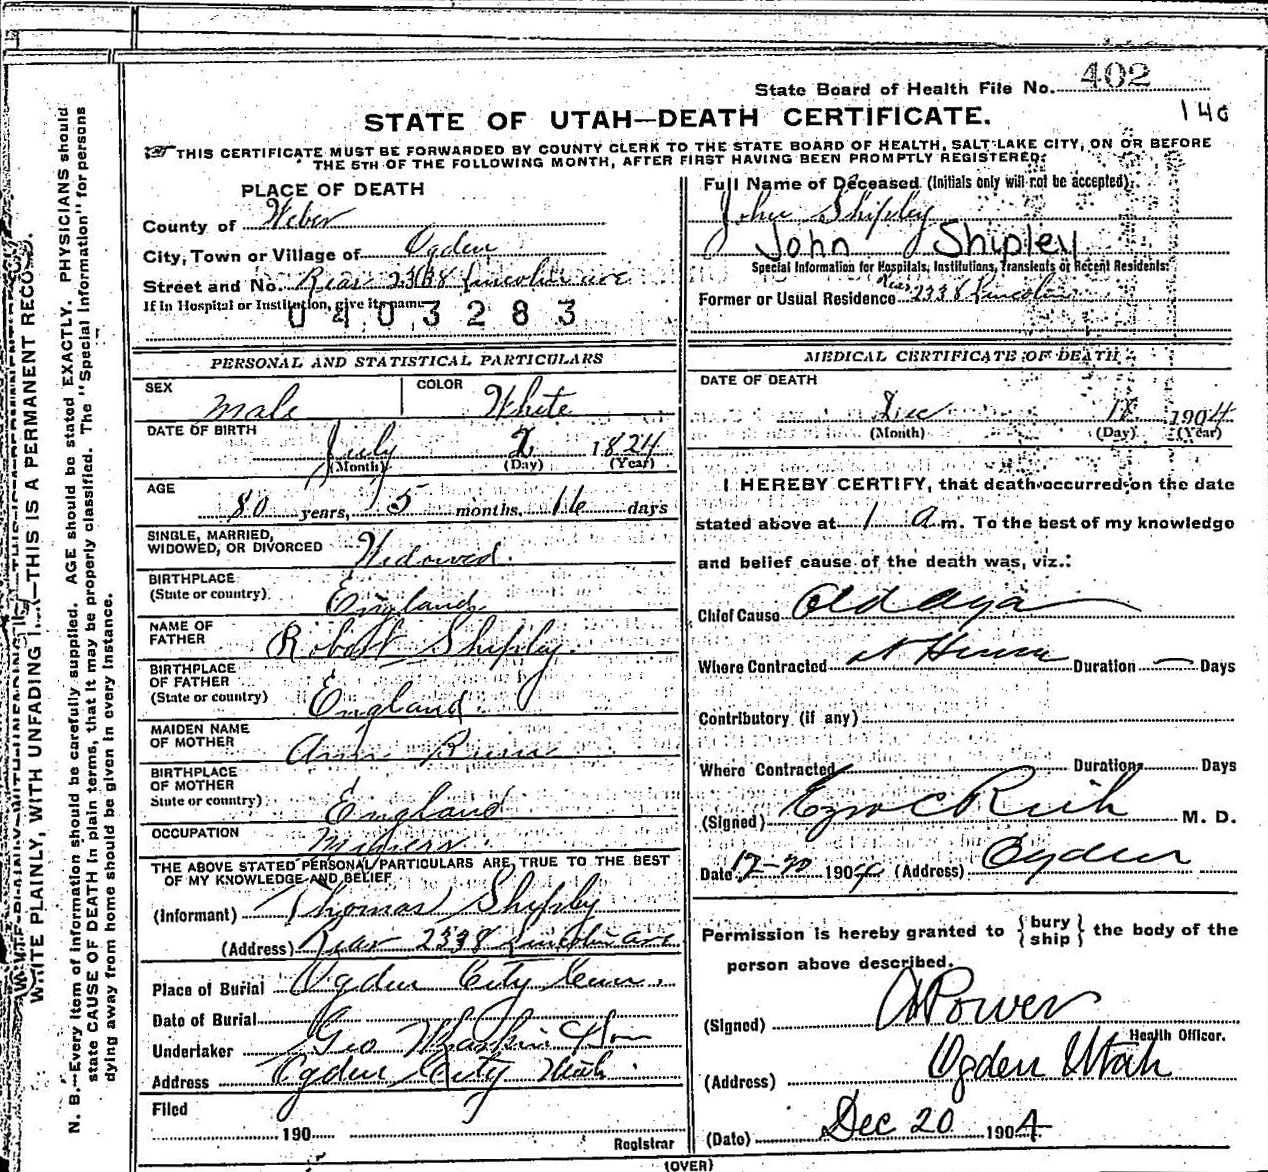 State Board of Health File No. 402
140
STATE OF UTAH—DEATH CERTIFICATE.
THIS CERTIFICATE MUST BE FORWARDED BY COUNTY CLERK TO THE STATE BOARD OF HEALTH, SALT LAKE CITY, ON OR BEFORE
THE 5TH OF THE FOLLOWING MONTH, AFTER FIRST HAVING BEEN PROMPTLY REGISTERED:
PLACE OF DEATH
County of Weber
City, Town or Village of Ogden
Street and No. Rear 2338 Lincoln ave
If in Hospital or Institution, give its name
0403283
Full Name of Deceased (Initials only will not be accepted).
John Shipley
John Shipley
Special Information for Hospitals, Institutions, Transients or Recent Residents:
Former or Usual Residence Rear 2338 Lincoln
PERSONAL AND STATISTICAL PARTICULARS
SEX Male COLOR White
DATE OF BIRTH July 2 1824
(Month) (Day) (Year)
AGE 80 years, 5 months, 16 days
SINGLE, MARRIED,
WIDOWED, OR DIVORCED Widowed.
BIRTHPLACE
(State or country) England
NAME OF
FATHER Robert Shipley.
BIRTHPLACE
OF FATHER
(State or country) England.
MAIDEN NAME
OF MOTHER Ann
BIRTHPLACE
OF MOTHER
State or country) England
OCCUPATION
THE ABOVE STATED PERSONAL PARTICULARS ARE TRUE TO THE BEST
OF MY KNOWLEDGE AND BELIEF
(Informant) Thomas Shipley
(Address) Rear 2338 Lincoln ave
Place of Burial Ogden City Cem.
Date of Burial
Undertaker Geo
Address Ogden City Utah.
Filed
190
Registrar
MEDICAL CERTIFICATE OF DEATH
DATE OF DEATH
Dec 18 1904
(Month) (Day) (Year)
I HEREBY CERTIFY, that death occurred on the date
stated above at 1 a.m. To the best of my knowledge
and belief cause of the death was, viz.:
Chief Cause Old age
Where Contracted at Home Duration — Days
Contributory (if any)
Where Contracted Duration Days
(Signed) Ezra C Rich M. D.
Date 12-20 1904 (Address) Ogden
Permission is hereby granted to {bury
ship} the body of the
person above described.
(Signed) Power
Health Officer.
(Address) Ogden Utah
(Date) Dec 20 1904
(OVER)
WRITE PLAINLY, WITH UNFADING —THIS IS A PERMANENT RECORD.
N. B.—Every item of information should be carefully supplied. AGE should be stated EXACTLY. PHYSICIANS should
state CAUSE OF DEATH in plain terms, that it may be properly classified. The "Special Information" for persons
dying away from home should be given in every instance.